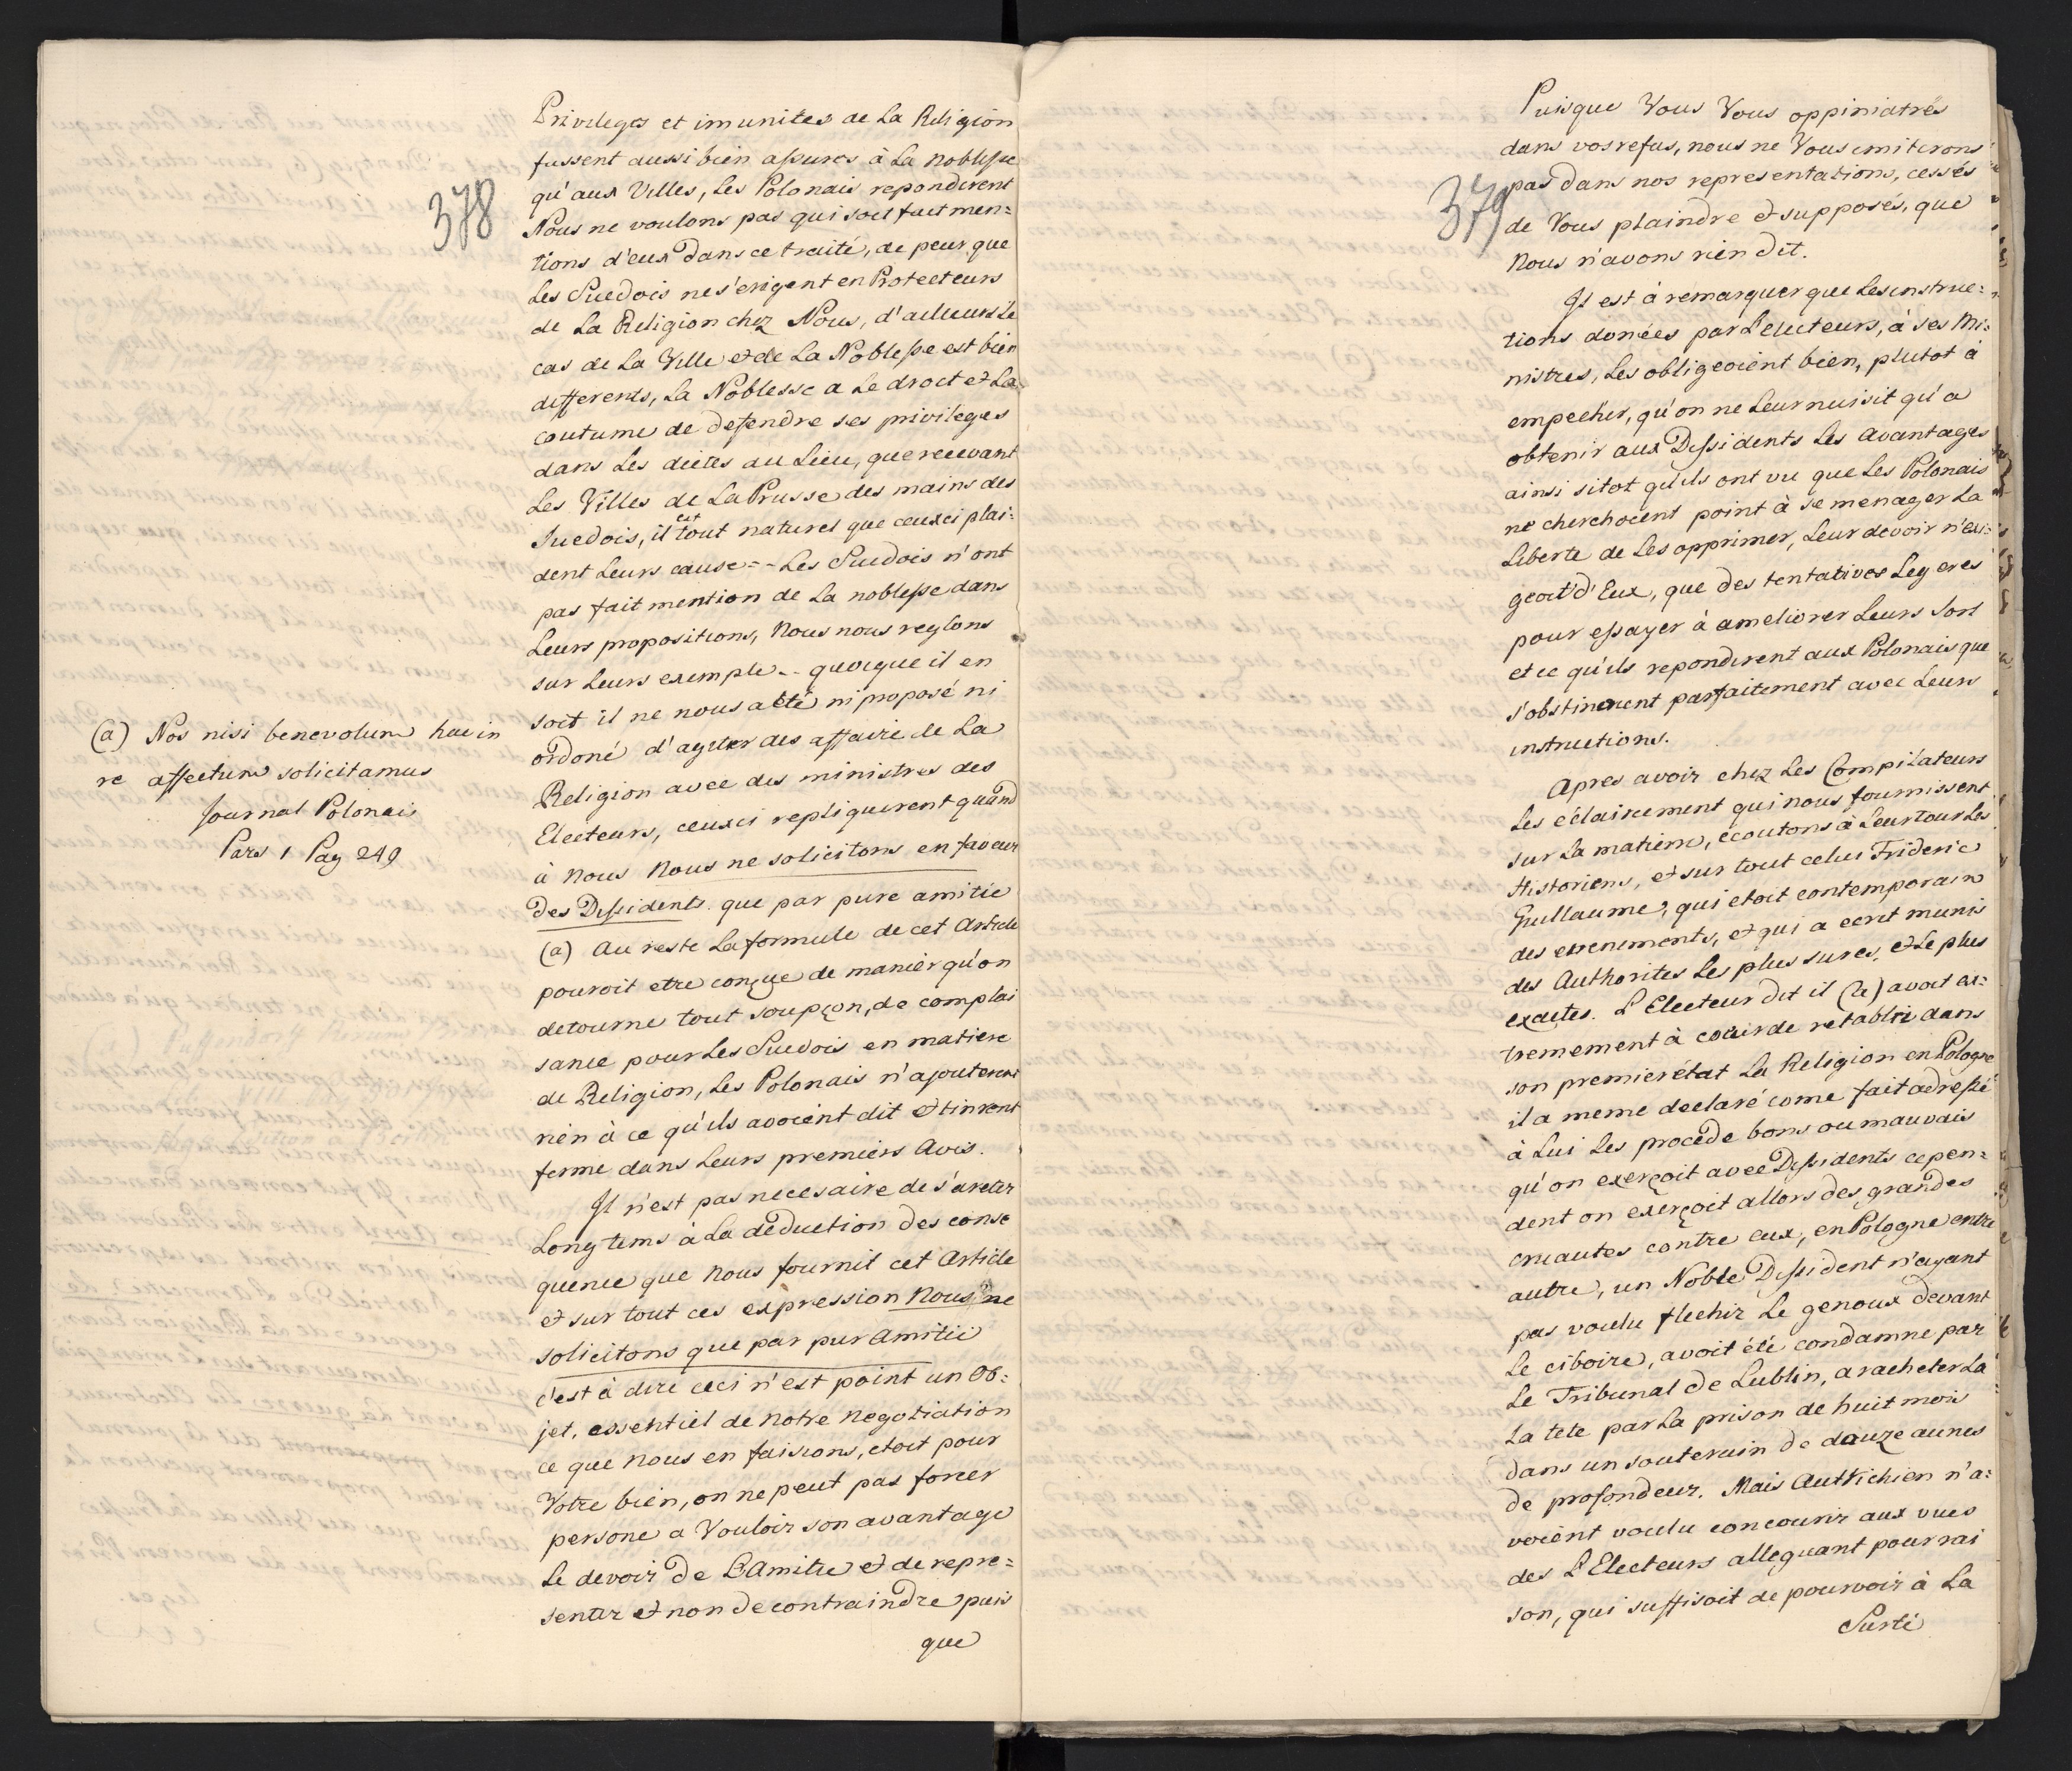 378
Privileges et imunites de la Religion
fussent aussi bien assurés à la noblesse
qu'aux Villes, les Polonais repondirent
Nous ne voulons pas qui soit fait men=
tions d'eux dans ce traité, de peur que
les Suedois ne s'erigent en Protecteurs
de la Religion chez Nous, d'ailleurs le
cas de la Ville et de la Noblesse est bien
differents, la Noblesse a le droit et la
coutume de defendre ses privileges
dans les dietes au lieu, que recevant
les Villes de la Prusse des mains des
Suedois, il est tout naturel que ceux ci plai=
dent leurs cause = - les Suedois n'ont
pas fait mention de la noblesse dans
leurs propositions, nous nous reglons
sur leurs exemple -- quoique il en
soit il ne nous a été ni proposé ni
ordoné d'agiter des affaire de la
Religion avec des ministres des
Electeurs, ceux ci repliquerent quand
à nous nous ne solicitons en faveur
des Dissidents que par pure amitie
(a) au reste la formule de cet Article
pouroit etre conçue de manièr qu'on
detourne tout soupçon, de complai
sance pour les Suedois en matiere
de Religion, les Polonais n'ajouterent
rien à ce qu'ils avoient dit et tinrent
ferme dans leurs premiers Avis.
Il n'est pas necesaire de s'areter
long tems à la deduction des conse
quence que nous fournit cet Article
et sur tout ces expression Nous ne
solicitons que par pur amitié
c'est à dire ceci n'est point un Ob=
jet, essentiel de notre Negotiation
ce que nous en faisions, etoit pour
Votre bien, on ne peut pas forcer
persone a Vouloir son avantage
le devoir de L'Amitie et de repre=
senter et non de contraindre puis
que
(a) Nos nisi benevolum hac in
re affectum solicitamus
Journal Polonais
Pars 1 Pag 249
379
Puisque Vous Vous oppiniatrés
dans vos refus, nous ne Vous imiterons
pas dans nos representations, cessés
de Vous plaindre et supposés, que
nous n'avons rien dit.
Il est à remarquer que les instruc=
tions donées par l'electeurs, à ses Mi=
nistres, les obligeoient bien, plutot à
empecher, qu'on ne leur nuisit qu'a
obtenir aux Dissidents les avantages
ainsi sitot qu'ils ont vu que les Polonais
ne cherchoient point à se menager la
liberte de les opprimer, leur devoir n'exi=
geoit d'Eux, que des tentatives legeres
pour essayer à ameliorer leurs sort
et ce qu'ils repondirent aux Polonais que
s'obstinerent parfaitement avec leurs
instructions.
Apres avoir chez les Compilateurs
les éclaircement qui nous fournissent
sur la matiere, écoutons à leur tour les
Historiens, et sur tout celui Frideric
Guillaume, qui etoit contemporain
des evenements, et qui a ecrit munis
des Authorites les plus sures, et le plus
exactes. L'Electeur dit il (a) avoit ex=
tremement à coeur de retablir dans
son premier état la Religion en Pologne
il a meme declaré come fait adressé
à lui les procede bons ou mauvais
qu'on exerçoit avec Dissidents cepen=
dent on exerçoit allors des grandes
cruautes contre eux, en Pologne entre
autre, un Noble Dissident n'ayant
pas voulu flechir le genoux devant
le ciboire, avoit été condamne par
le Tribunal de Lublin, a racheter la
la tete par la prison de huit mois
dans un souterain de douze aunes
de profondeur. Mais Auttrichien n'a=
voient voulu concourir aux vues
des L'Electeurs alleguant pour rai
son, qui suffisoit de pourvoir à la
Surté